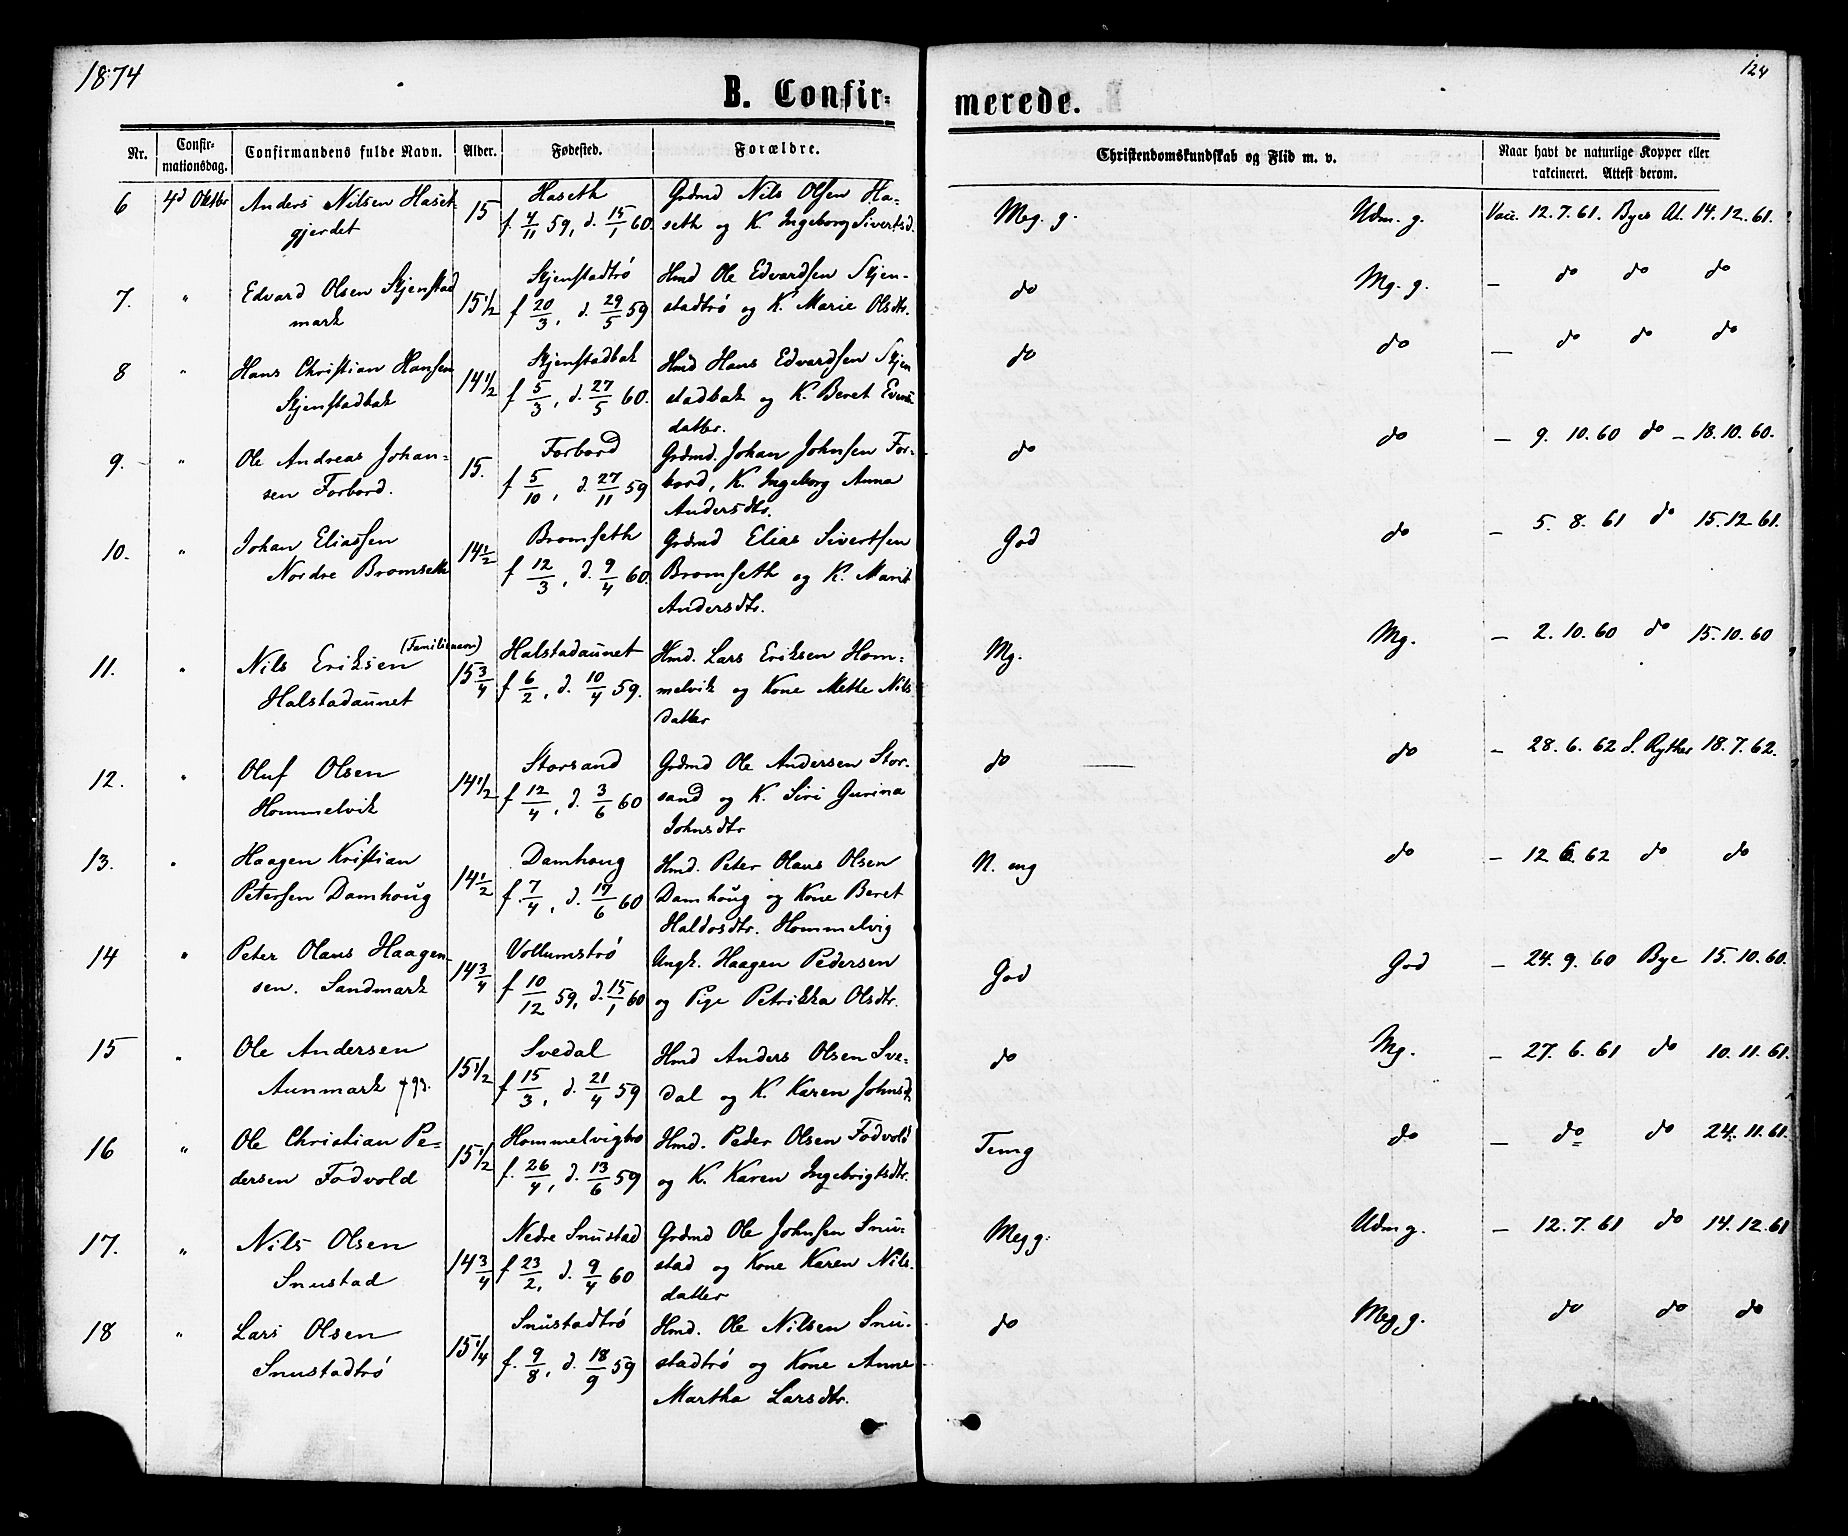 1874
124
B. Confir-
merede.
Nr.
Confir-
mationsdag.
Confirmandens fulde Navn.
Alder.
Fødested.
Forældre.
Christendomskundskab og Flid m. v.
Naar havt de naturlige Kopper eller
vakcineret. Attest derom.
6 4d Oktbr Anders Nilsen Haset- 15 Haseth Grdmd Nils Olsen Ha- Meg. g. Udm. g. Vac. 12.7.61. Byes At. 14.12.61.
gjerdet f. 4/11 59, d. 15/1 60. seth og K. Ingeborg Sivertsd.
7. " Edvard Olsen Stjenstad 15 1/2 Stjenstadtrø Hmd Ole Edvardsen Stjen- do Mg. g. — do do do
mark f 20/3, d. 29/5 59 stadtrø og K. Marie Olsdtr.
8 " Hans Christian Hansen 14 1/2 Stjenstadbak Hmd Hans Edvardsen Stjen do do — do do do
Stjenstadbak f 5/3, d. 27/5 60. stadbak og K. Beret Everts
datter.
9. " Ole Andreas Johan- 15. Forbord Grdmd. Johan Johnsen For- do do — 9. 10. 60 do — 18.10.60.
sen Forbord. f 5/10, d. 27/11 59 bord, K. Ingeborg Anna
Andersdtr.
10. " Johan Eliassen 14 1/2 Bromseth Grdmd Elias Sivertsen God do — 5. 8. 61 do 15.12 61.
Nordre Bromseth f 12/3, d. 9/4 60. Bromseth og K. Marit
Andersdtr.
11. " Nils Eriksen (Familienavn) 15 3/4 Halstadaunet Hmd. Lars Eriksen Hom- Mg. Mg. — 2.10.60 do 15.10.60
Halstadaunet f 6/2, d. 10/4 59. melvik og Kone Mette Nils
datter
12. " Oluf Olsen 14 1/2 Storsand Grdmd Ole Andersen Stor- do — do — 28. 6. 62 S. Rythes 18.7.62.
Hommelvik f. 12/4, d. 3/6 60 sand og K. Siri Gurina
Johnsdtr
13. " Haagen Kristian 14 1/2 Damhoug Hmd. Peter Olaus Olsen N. mg do — 12 6. 62 do do
Petersen Damhoug f. 7/4, d. 17/6 60 Damhoug og Kone Beret
Haldosdtr. Hommelvig
14 " Peter Olaus Haagen- 14 3/4 Vollumstrø Ungk. Haagen Pedersen God God — 24. 9. 60 Bye 15.10.60.
sen. Sandmark f 10/12 59, d. 15/1 60 og Pige Petrikka Olsdtr.
15 " Ole Andersen 15 1/2 Svedal Hmd Anders Olsen Sve- do Mg. — 27. 6. 61 do 10.11.61.
Aunmark f. 15/3, d. 21/4 59 dal og K. Karen Johnsd.
16 " Ole Christian Pe- 15 1/2 Hommelvigtrø Hmd. Peder Olsen Fodvold Temg do — do do 24.11.61.
dersen Fodvold f. 26/4, d. 13/6 59 og K. Karen Ingebrigtsdtr.
17. " Nils Olsen 14 3/4 Nedre Snustad Grdmd Ole Johnsen Snu- Meg g. Udm g. — 12.7.61 do 14.12.61
Snustad f 23/2, d. 9/4 60 stad og Kone Karen Nils-
datter
18 " Lars Olsen 15 1/4 Snustadtrø Hmd. Ole Nilsen Snu- do Meg g. do do do
Snustadtrø f. 9/8, d. 18/9 59 stadtrø og Kone Anne
Martha Larsdtr.